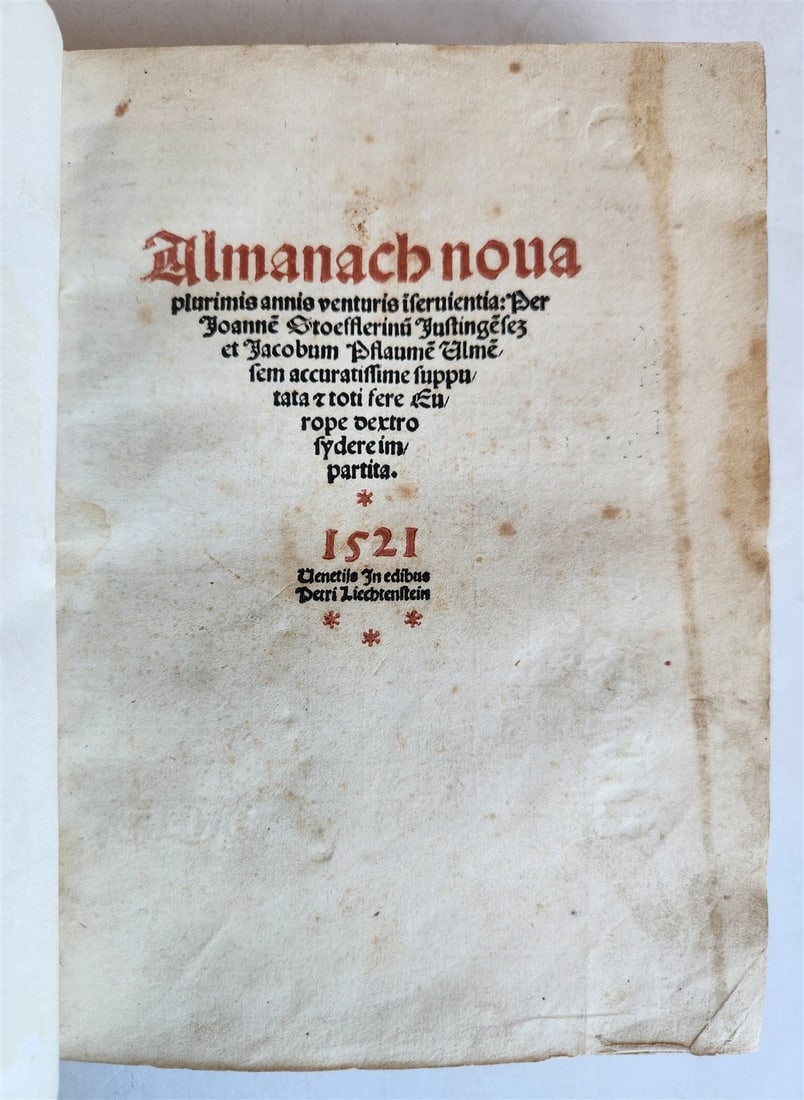 Almanach noua
plurimis annis venturis īseruientia: Per
Joannē Stoefflerinū Justingēsez
et Jacobum Pflaumē Ulmē/
sem accuratissime suppu/
tata ⁊ toti fere Eu/
rope dextro
sydere im/
partita.
*
1521
Uenetijs In edibus
Petri Liechtenstein
* * *